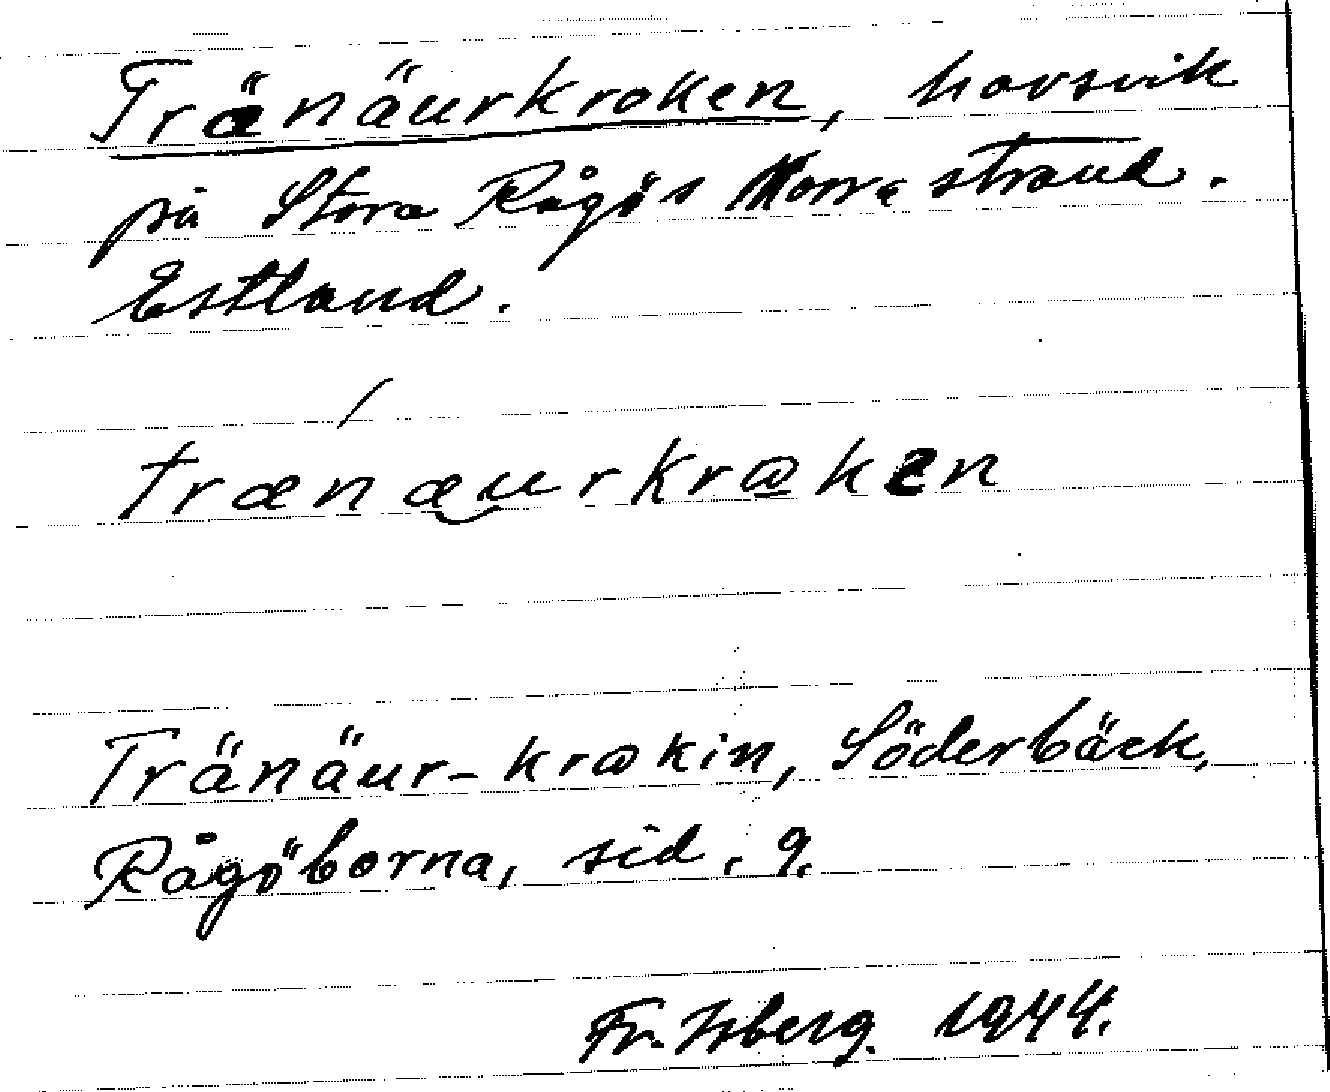 Tränäurkroken, havsvik
på Stora Rågös Norra strand.
Estland.
trænæurkrɷken
Tränäur-krɷkin, Söderbäck,
Rågöborna, sid. 9.
Fr. Isberg. 1944.